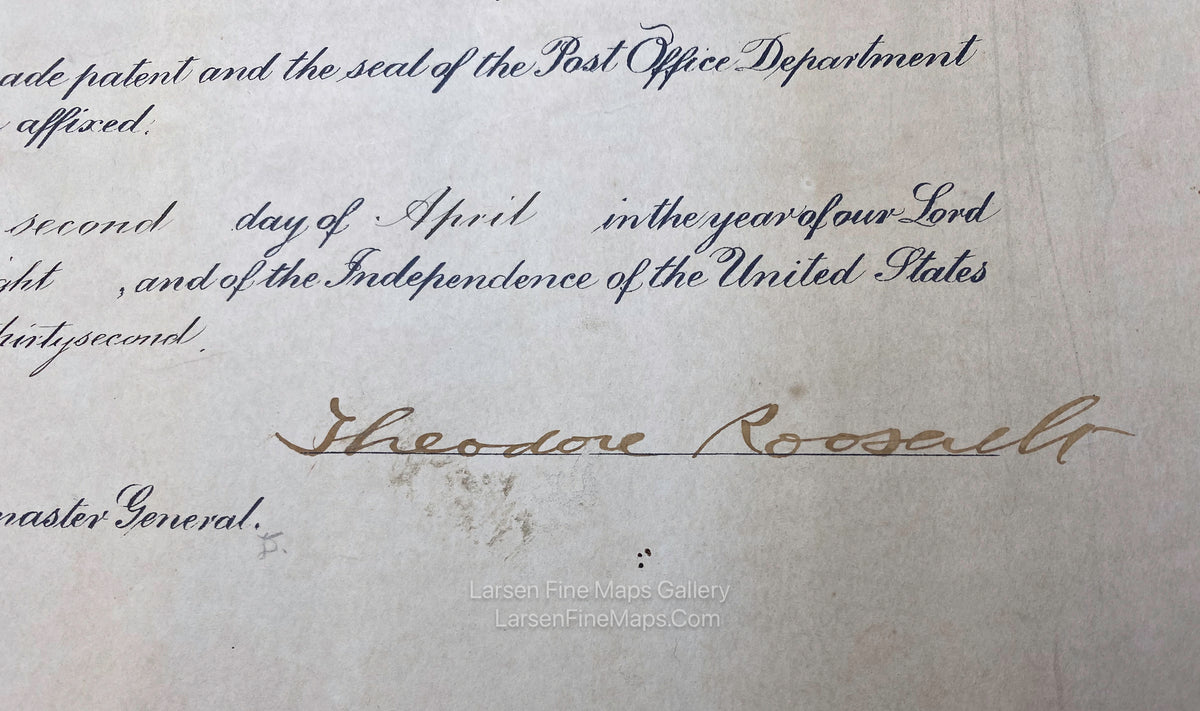 ade patent and the seal of the Post Office Department
affixed.
second day of April in the year of our Lord
ght , and of the Independence of the United States
hirtysecond.
Theodore Roosevelt
master General.
Larsen Fine Maps Gallery
LarsenFineMaps.Com